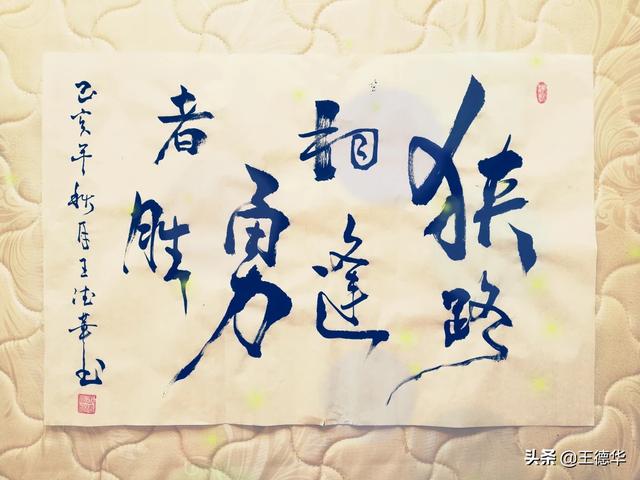 狭路
相逢
勇
者胜
己亥年秋月王德华书
头条 @王德华